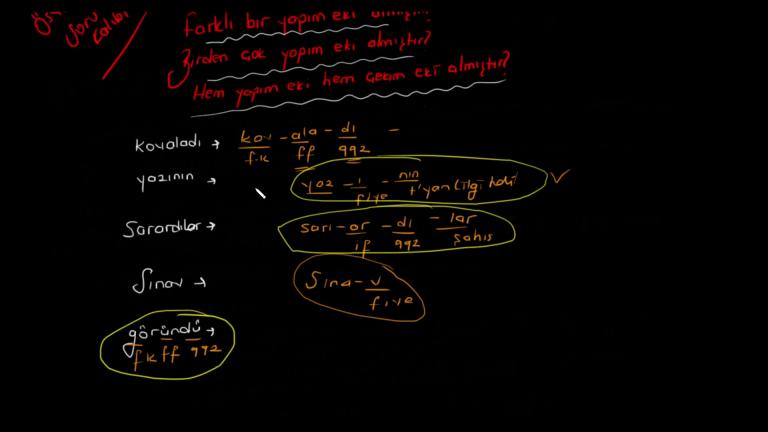 ÖSY
soru
kalıbı
farklı bir yapım eki almıştır?
Birden çok yapım eki almıştır?
Hem yapım eki hem çekim eki almıştır?
Kovaladı → kov - ala - dı -
f.k ff ggz
yazının → yaz - ı - nın
fiye t'yan (ilgi hali)
Sarardılar → sarı - ar - dı - lar
if ggz şahıs
Sınav → Sına - v
fiye
göründü →
fk ff ggz